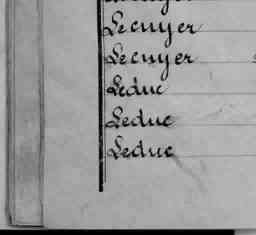 Lecuyer
Lecuyer
Leduc
Leduc
Leduc